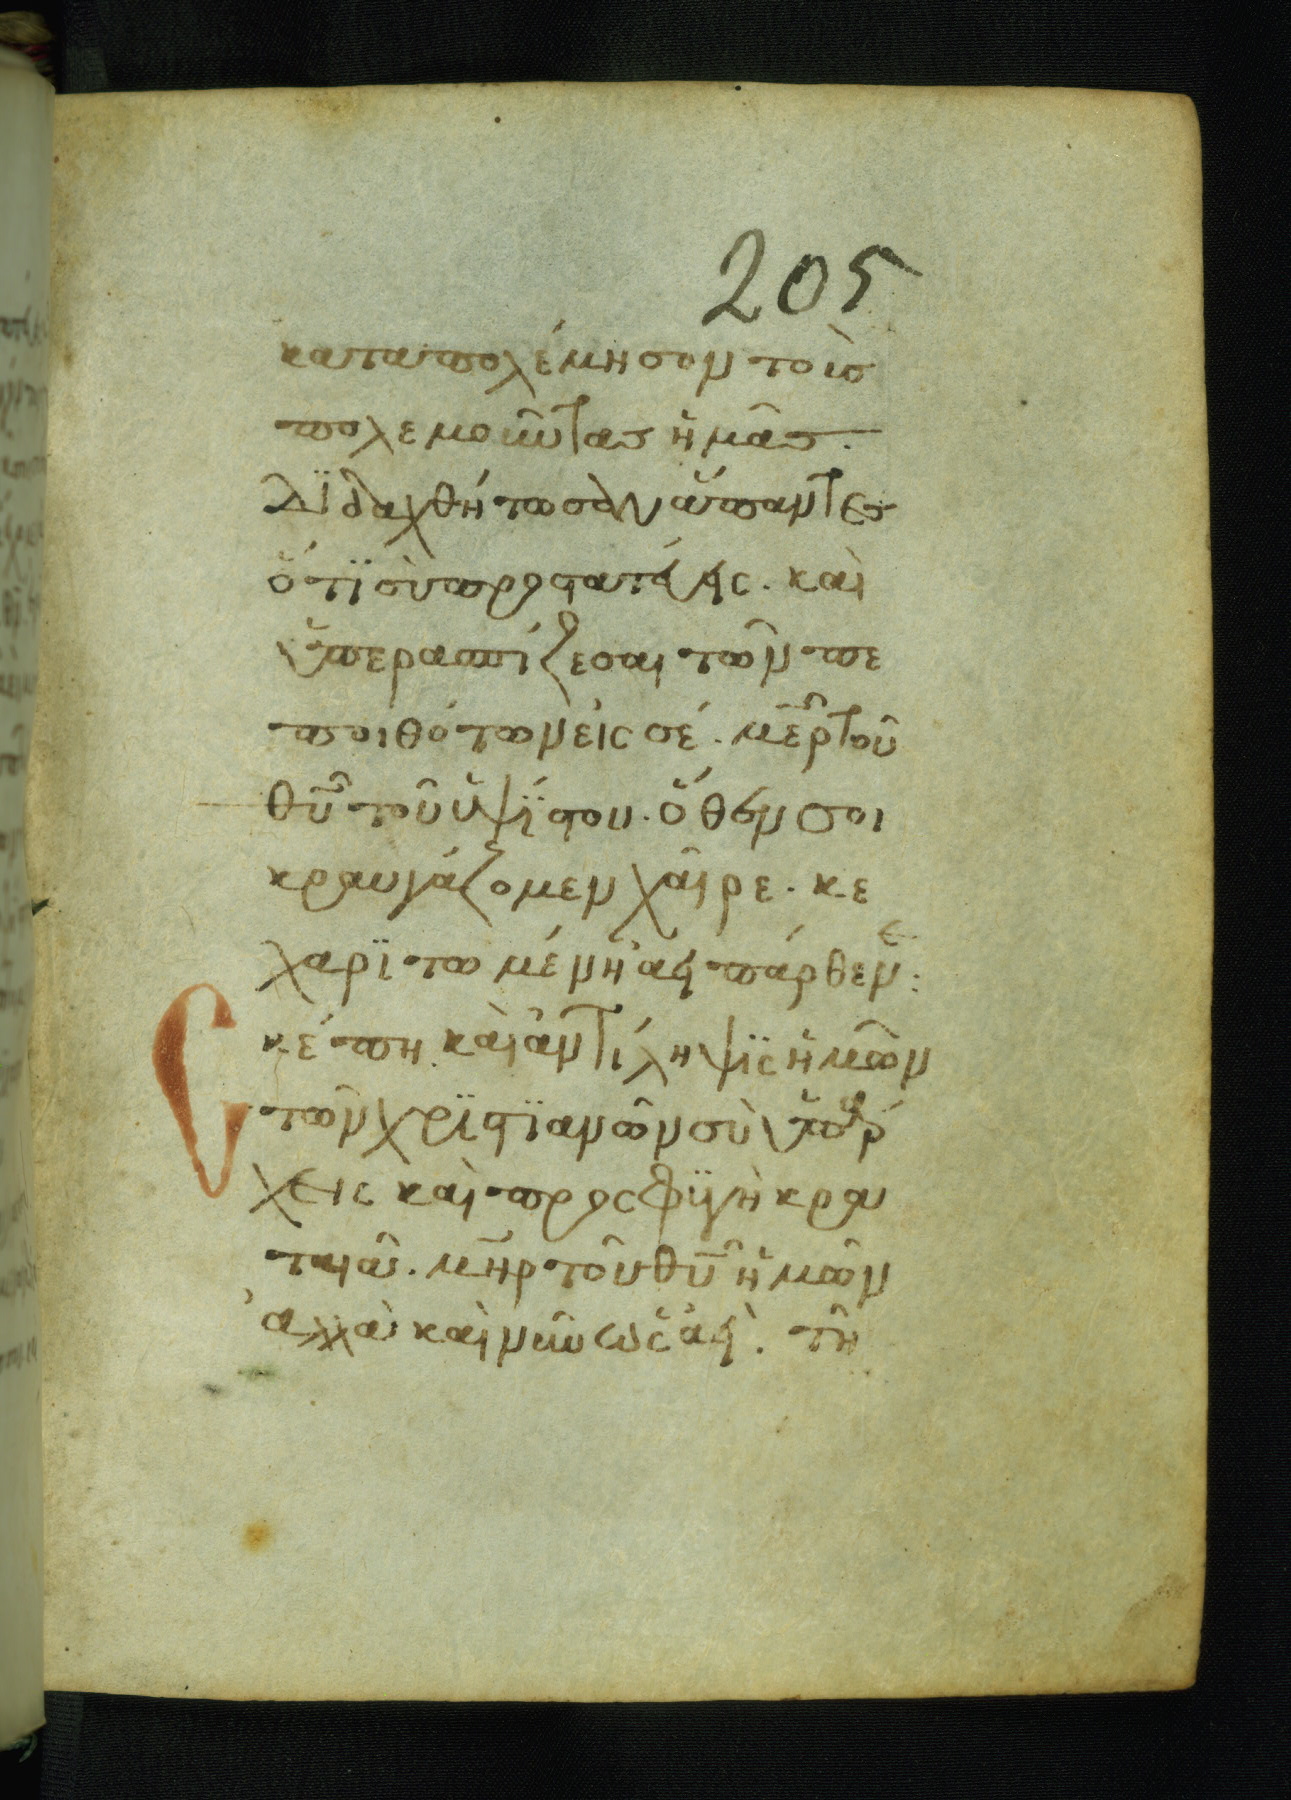 205
καταπολέμησον τοὺς
πολεμοῦντας ἡμᾶς.
Διδαχθήτωσαν ἅπαντες
ὅτϊ σὺ προστατεύεις. καὶ
ὑπερασπίζεσαι τῶν πε
ποιθότων εἰς σέ. μ̅ε̅ρ τοῦ
θ̅υ̅ τοῦ ὑψϊστου. ὅθεν σοι
κραυγάζομεν χαῖρε. κε
χαρϊτωμένη ἀεὶ πάρθενε:
Σκέπη καὶ ἀντίληψϊς ἡμῶν
τῶν χρϊστϊανῶν σὺ ὑπάρ
χεις καὶ προσφϋγὴ κραυ
ταιά. μ̅η̅ρ τοῦ θ̅υ̅ ἡμῶν
ἀλλὰ καὶ νῦν ὡς ἀεὶ. τῆ